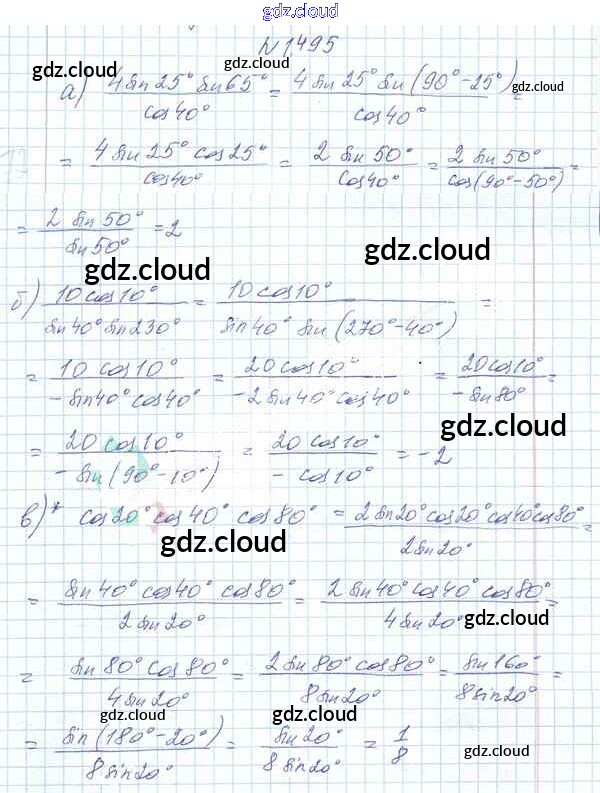 gdz.cloud
N 1495
а) 4 sin 25° sin 65° / cos 40° = 4 sin 25° sin (90° - 25°) / cos 40° =
= 4 sin 25° cos 25° / cos 40° = 2 sin 50° / cos 40° = 2 sin 50° / cos (90° - 50°) =
= 2 sin 50° / sin 50° = 2
б) 10 cos 10° / sin 40° sin 230° = 10 cos 10° / sin 40° sin (270° - 40°) =
= 10 cos 10° / - sin 40° cos 40° = 20 cos 10° / - 2 sin 40° cos 40° = 20 cos 10° / - sin 80° =
= 20 cos 10° / - sin (90° - 10°) = 20 cos 10° / - cos 10° = - 2
в)* cos 20° cos 40° cos 80° = 2 sin 20° cos 20° cos 40° cos 80° / 2 sin 20° =
= sin 40° cos 40° cos 80° / 2 sin 20° = 2 sin 40° cos 40° cos 80° / 4 sin 20° =
= sin 80° cos 80° / 4 sin 20° = 2 sin 80° cos 80° / 8 sin 20° = sin 160° / 8 sin 20° =
= sin (180° - 20°) / 8 sin 20° = sin 20° / 8 sin 20° = 1/8
gdz.cloud
gdz.cloud
gdz.cloud
gdz.cloud
gdz.cloud
gdz.cloud
gdz.cloud
gdz.cloud
gdz.cloud
gdz.cloud
gdz.cloud
gdz.cloud